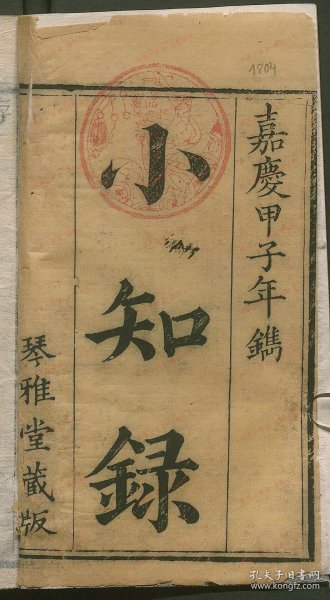 1804
嘉慶甲子年鐫
小知錄
琴雅堂藏版
孔夫子旧书网
www.kongfz.com